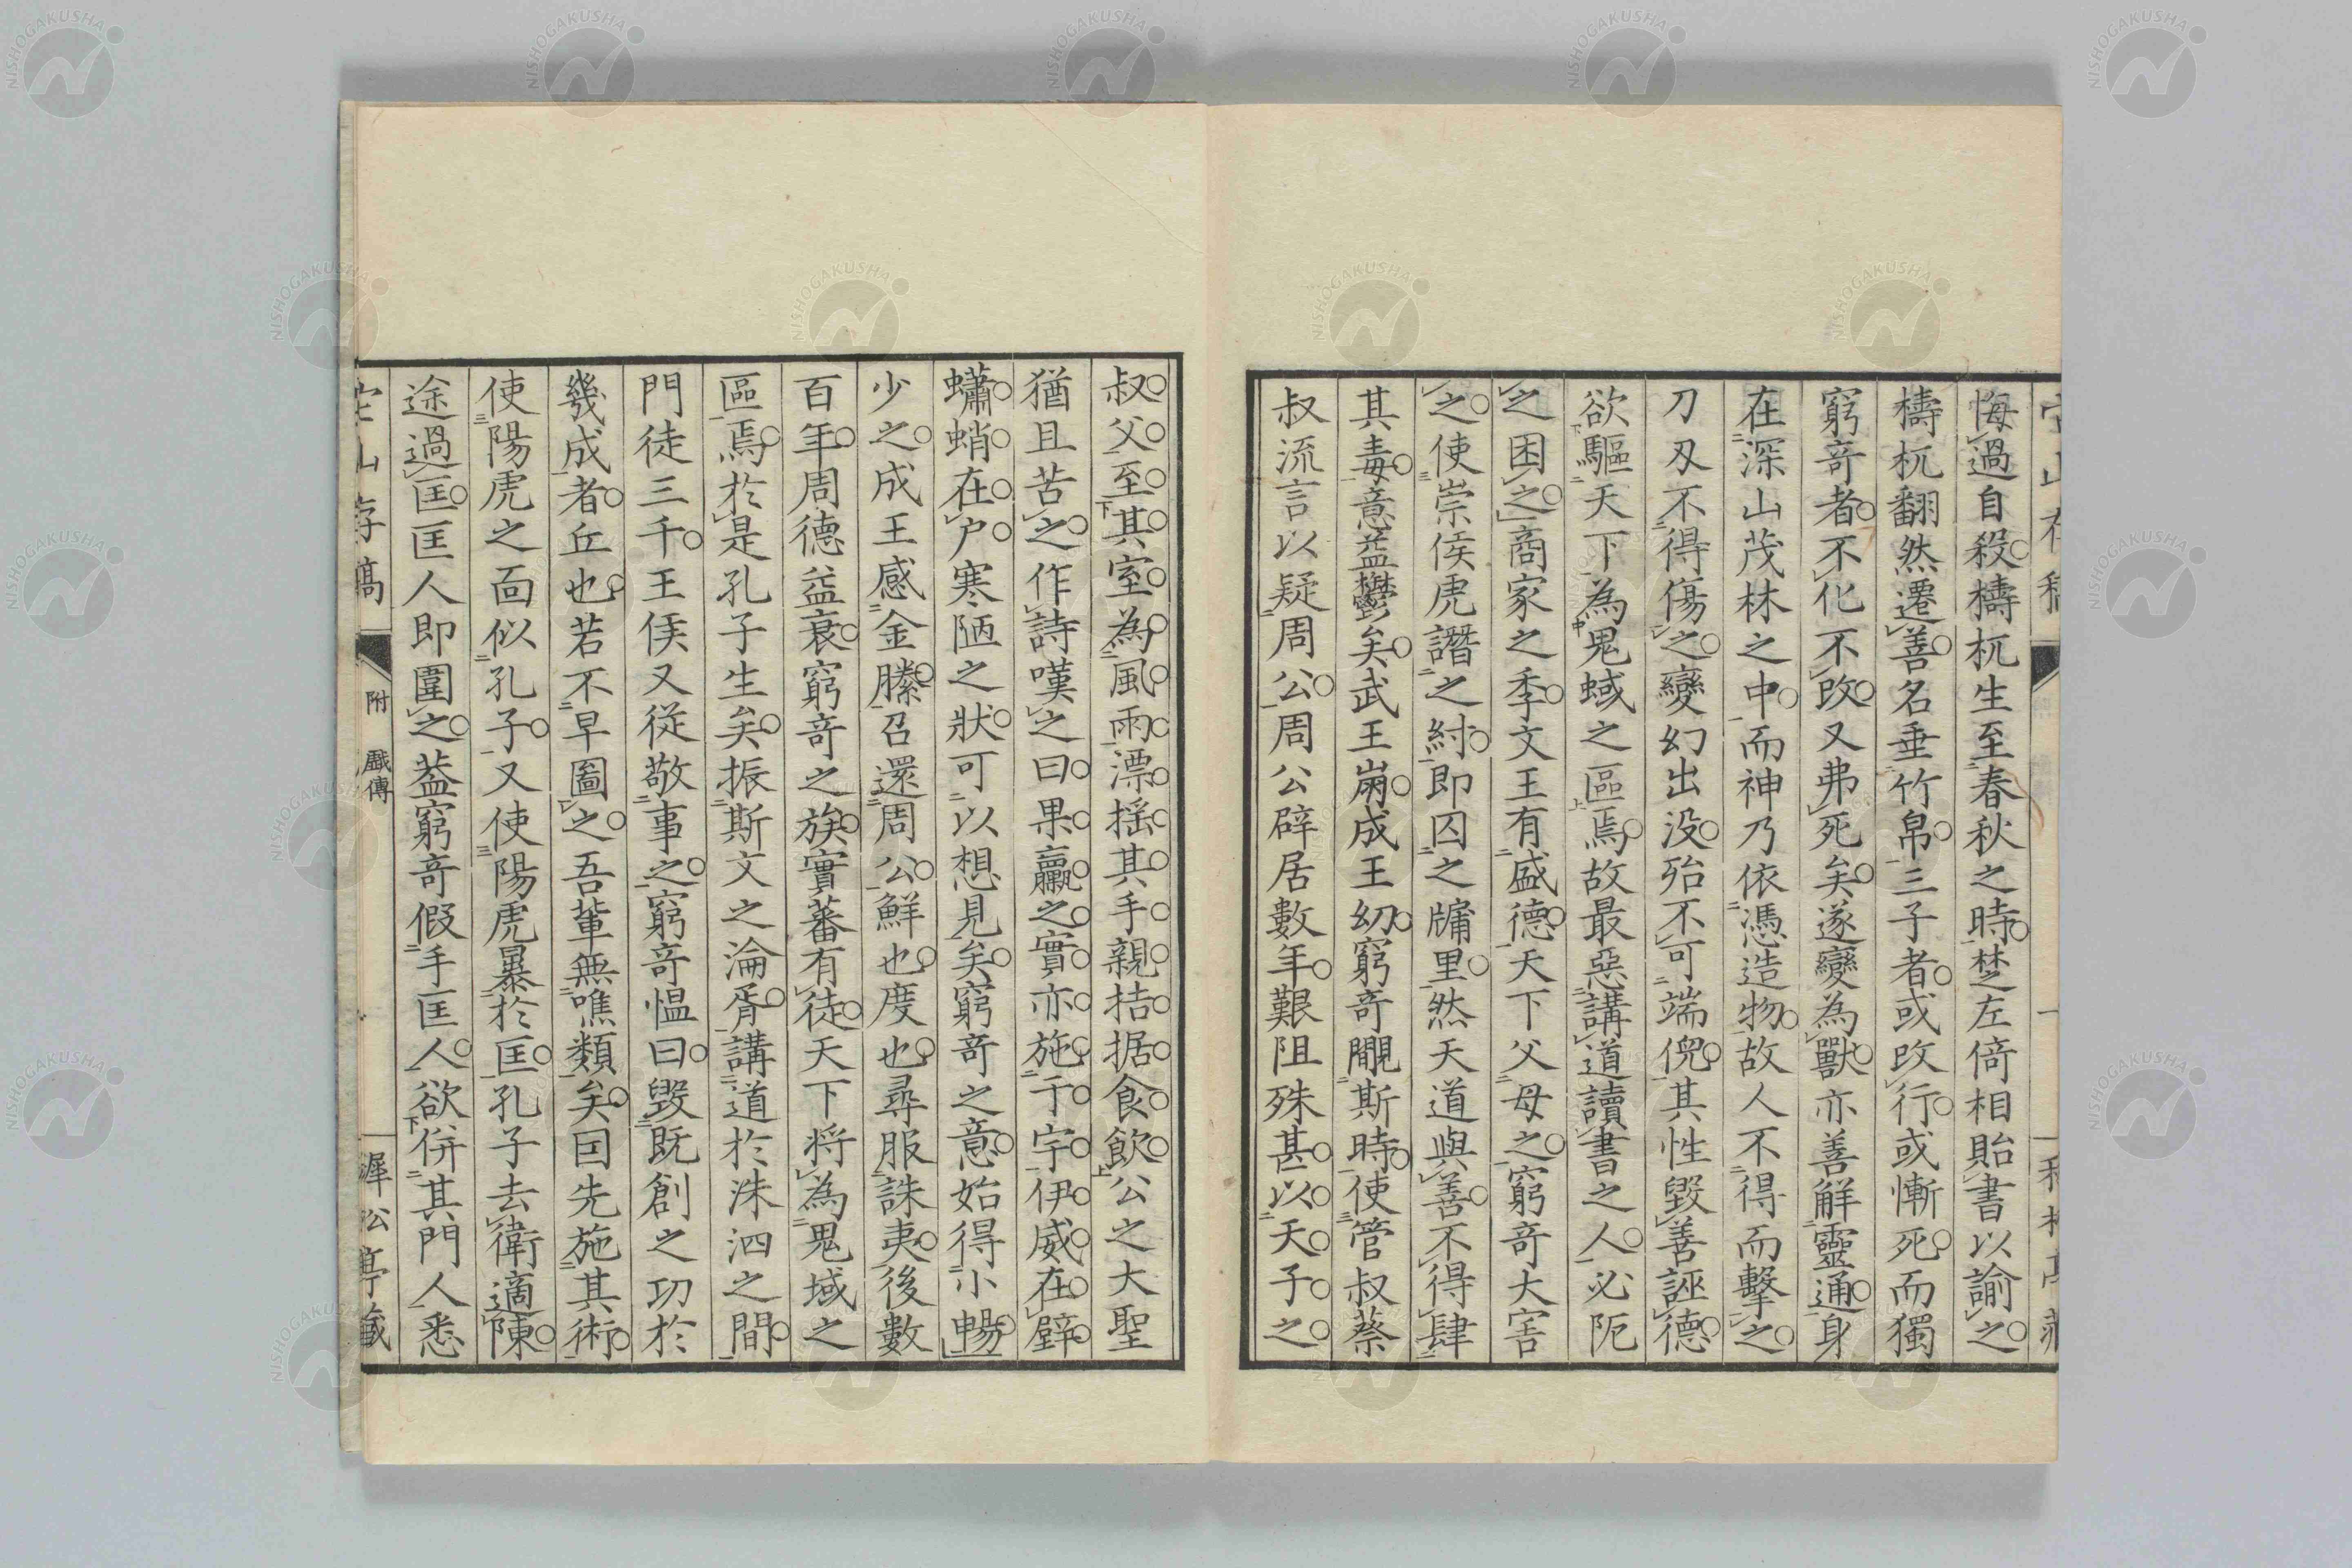 悔過自殺檮杌生至春秋之時楚左倚相貽書以諭之
檮杌翻然遷善名垂竹帛三子者或改行或慚死而獨
窮奇者不化不改又弗死矣遂變為獸亦善解靈通身
在深山茂林之中而神乃依憑造物故人不得而擊之
刀刃不得傷之變幻出没殆不可端倪其性毀善誣德
欲驅天下為鬼蜮之區焉故最惡講道讀書之人必阨
之困之商家之季文王有盛德天下父母之窮奇大害
之使崇侯虎譖之紂即囚之牖里然天道與善不得肆
其毒意益鬱矣武王崩成王幼窮奇覵斯時使管叔蔡
叔流言以疑周公周公辟居數年艱阻殊甚以天子之
叔父至其室為風雨漂揺其手親拮据食飲公之大聖
猶且苦之作詩嘆之曰果臝之實亦施于宇伊威在壁
蠨蛸在户寒陋之狀可以想見矣窮奇之意始得小暢
少之成王感金縢召還周公鮮也度也尋服誅夷後數
百年周德益衰窮奇之族實蕃有徒天下将為鬼域之
區焉於是孔子生矣振斯文之淪胥講道於洙泗之間
門徒三千王侯又従敬事之窮奇愠曰毀既創之功於
幾成者丘也若不早圖之吾輩無噍類矣囙先施其術
使陽虎之面似孔子又使陽虎暴於匡孔子去衛適陳
途過匡匡人即圍之葢窮奇假手匡人欲併其門人悉
附 戲傳